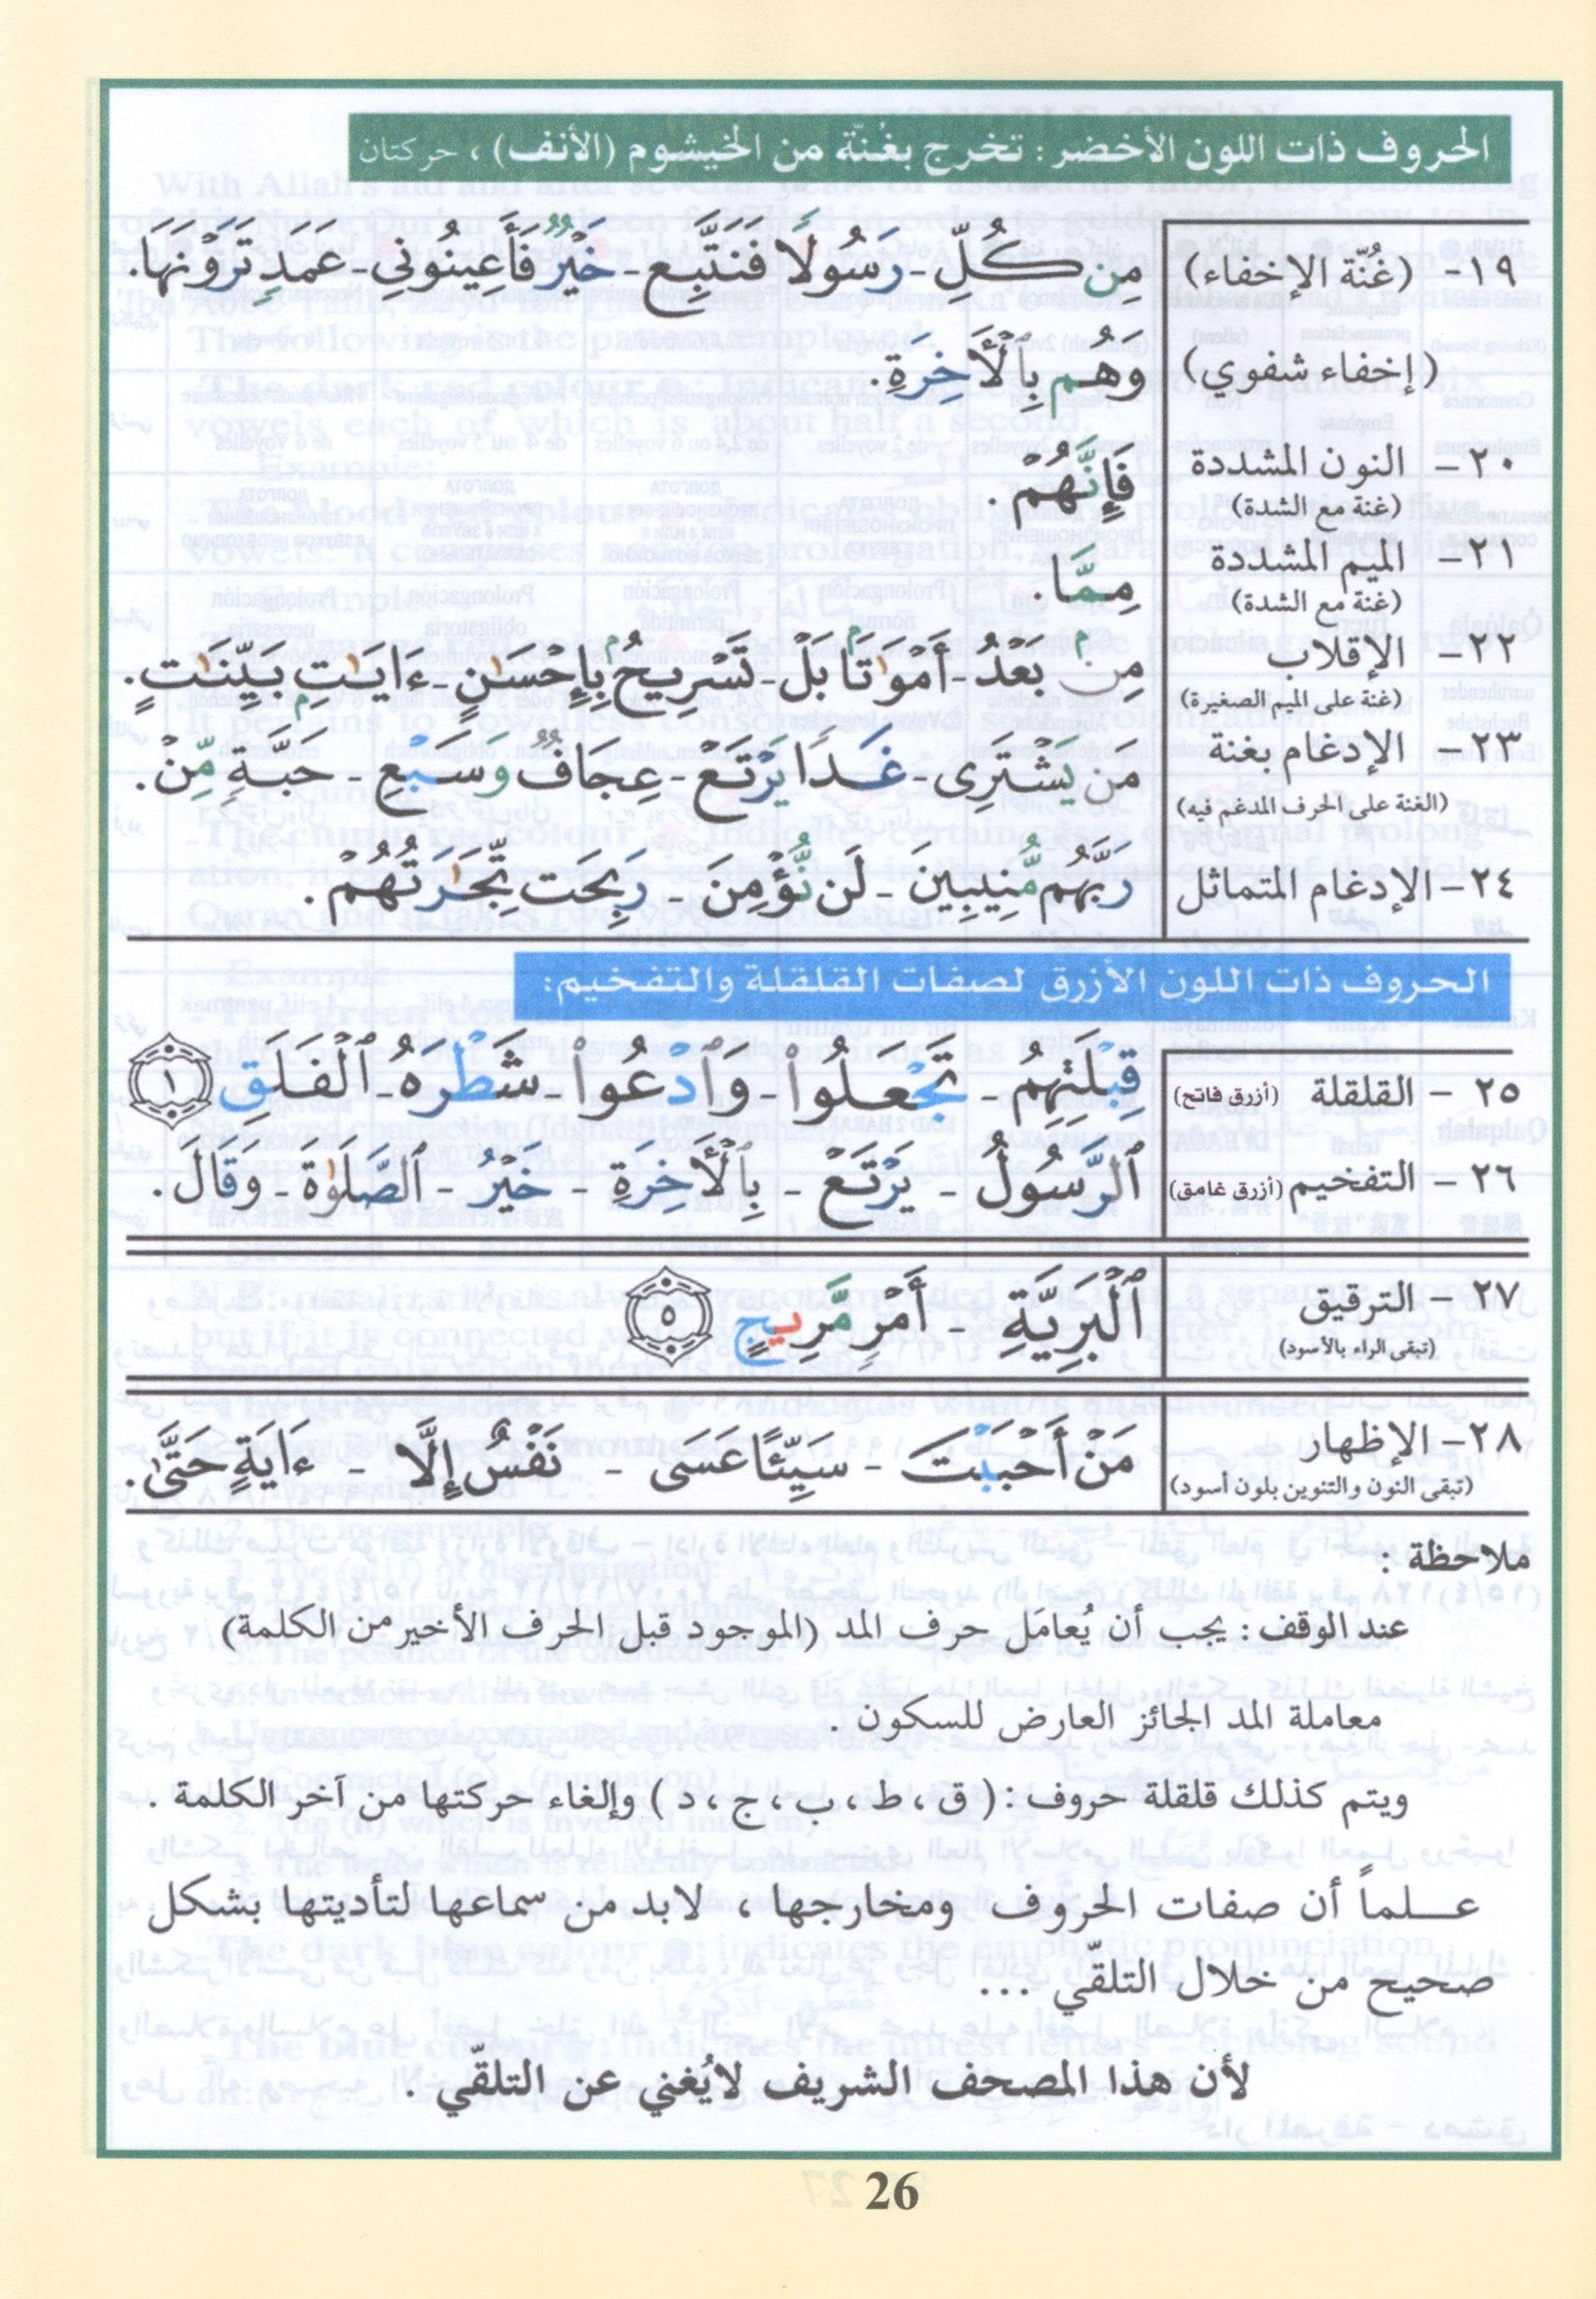 الحروف ذات اللون الأخضر : تخرج بغُنّة من الخيشوم (الأنف) ، حركتان
١٩- (غُنّة الإخفاء) مِن كُلِّ - رَسُولًا فَنَتَّبِعَ - خَيْرٌ فَأَعِينُونِي - عَمَدٍ تَرَوْنَهَا.
(إخفاء شفوي) وَهُم بِٱلْأَخِرَةِ.
٢٠- النون المشددة فَإِنَّهُمْ .
(غنة مع الشدة)
٢١- الميم المشددة مِمَّا .
(غنة مع الشدة)
٢٢- الإقلاب مِنۢ بَعْدُ - أَمْوَٰتًۢا بَلْ - تَسْرِيحُۢ بِإِحْسَٰنٍ - ءَايَٰتِۭ بَيِّنَٰتٍ .
(غنة على الميم الصغيرة)
٢٣- الإدغام بغنة مَن يَشْتَرِى - غَدًا يَرْتَعْ - عِجَافٌ وَسَبْعِ - حَبَّةٍ مِّنْ .
(الغنة على الحرف المدغم فيه)
٢٤- الإدغام المتماثل رَبَّهُم مُّنِيبِينَ - لَن نُّؤْمِنَ - رَبِحَت تِّجَٰرَتُهُمْ .
الحروف ذات اللون الأزرق لصفات القلقلة والتفخيم:
٢٥ - القلقلة (أزرق فاتح) قِبْلَتِهِمُ - تَجْعَلُوا۟ - وَٱدْعُوا۟ - شَطْرَهُ - ٱلْفَلَقِ ١
٢٦ - التفخيم (أزرق غامق) ٱلرَّسُولُ - يَرْتَعْ - بِٱلْأَخِرَةِ - خَيْرُ - ٱلصَّلَوٰةَ - وَقَالَ .
٢٧ - الترقيق ٱلْبَرِيَّةِ - أَمْرٍ مَّرِيجٍ ٥
(تبقى الراء بالأسود)
٢٨- الإظهار مَنْ أَحْبَبْتَ - سَيِّئًا عَسَى - نَفْسٌ إِلَّا - ءَايَةٍ حَتَّىٰ .
(تبقى النون والتنوين بلون أسود)
ملاحظة :
عند الوقف : يجب أن يُعامَل حرف المد (الموجود قبل الحرف الأخير من الكلمة)
معاملة المد الجائز العارض للسكون .
ويتم كذلك قلقلة حروف : ( ق ، ط ، ب ، ج ، د ) وإلغاء حركتها من آخر الكلمة .
علماً أن صفات الحروف ومخارجها ، لابد من سماعها لتأديتها بشكل
صحيح من خلال التلقّي ...
لأن هذا المصحف الشريف لايُغني عن التلقّي .
26